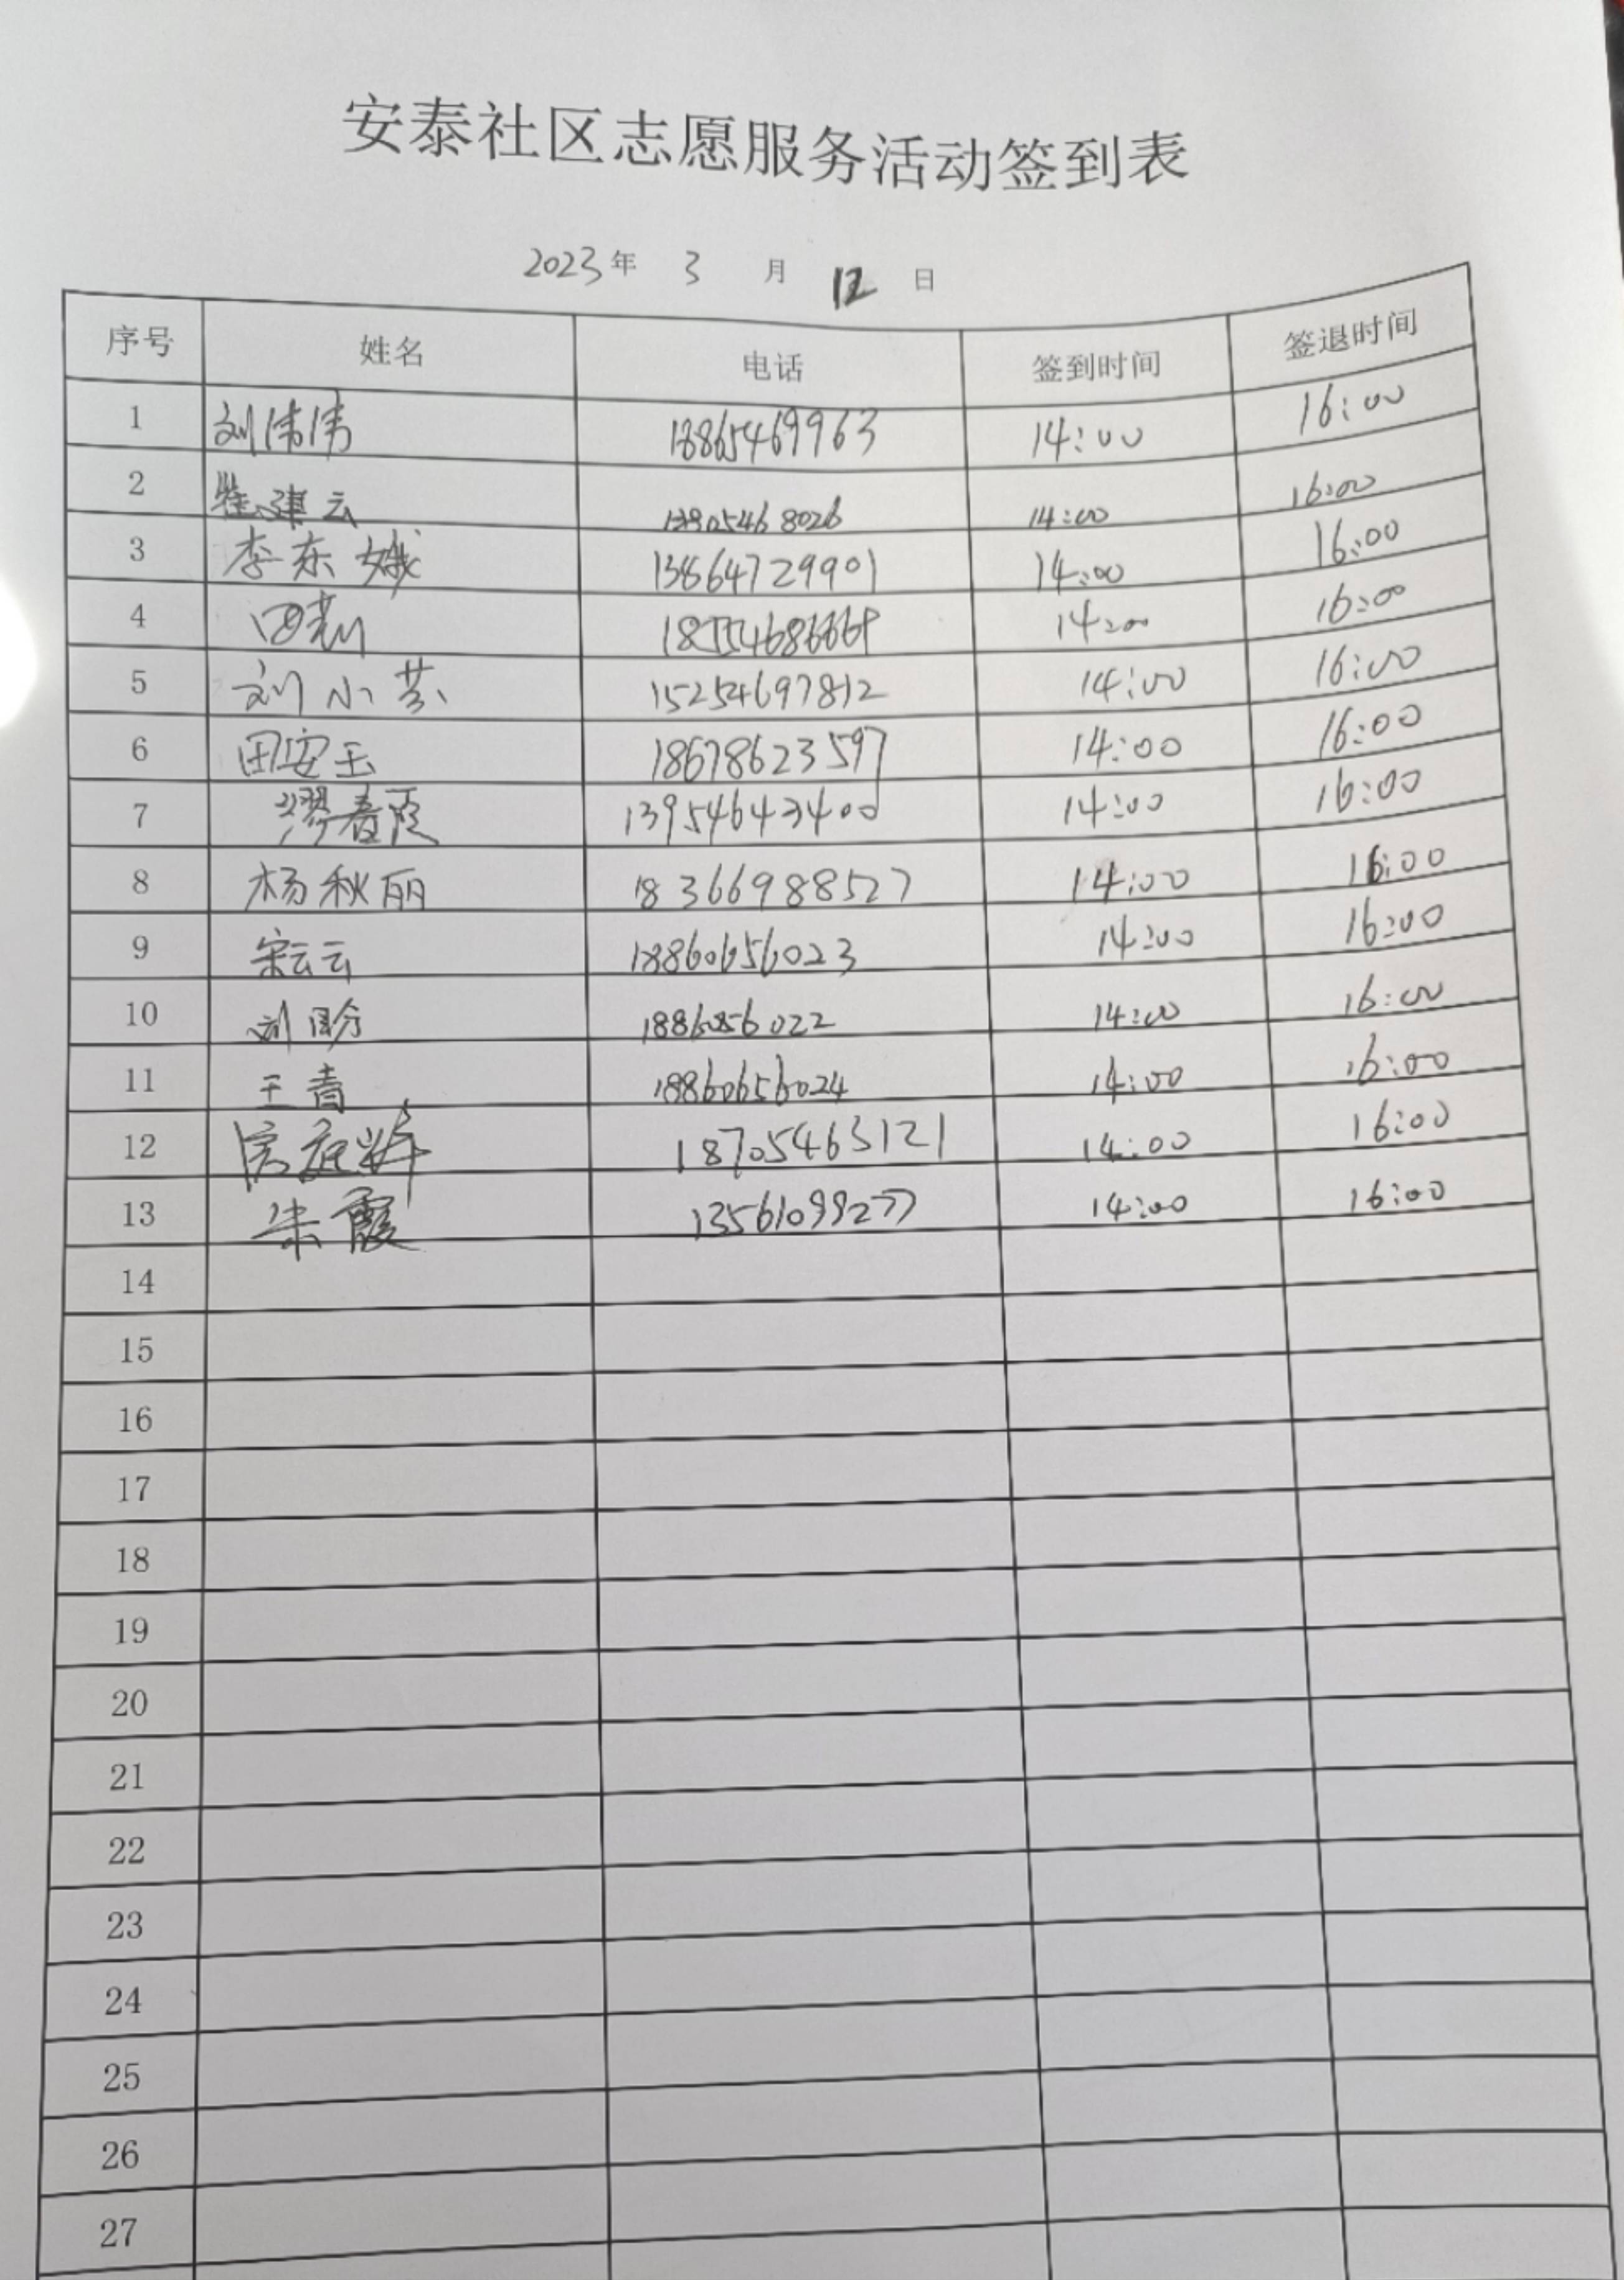 安泰社区志愿服务活动签到表
2023年 3 月 12 日
序号 姓名 电话 签到时间 签退时间
1 刘伟伟 18865469963 14:00 16:00
2 崔建云 13905468026 14:00 16:00
3 李东娥 13864729901 14:00 16:00
4 14:00 16:00
5 刘小芸 15254697812 14:00 16:00
6 田安玉 18678623597 14:00 16:00
7 谬春霞 13954643400 14:00 16:00
8 杨秋丽 18366988527 14:00 16:00
9 宋云云 18860656023 14:00 16:00
10 刘 18860656022 14:00 16:00
11 王青 18860656024 14:00 16:00
12 18705463121 14:00 16:00
13 朱霞 13561099277 14:00 16:00
14
15
16
17
18
19
20
21
22
23
24
25
26
27